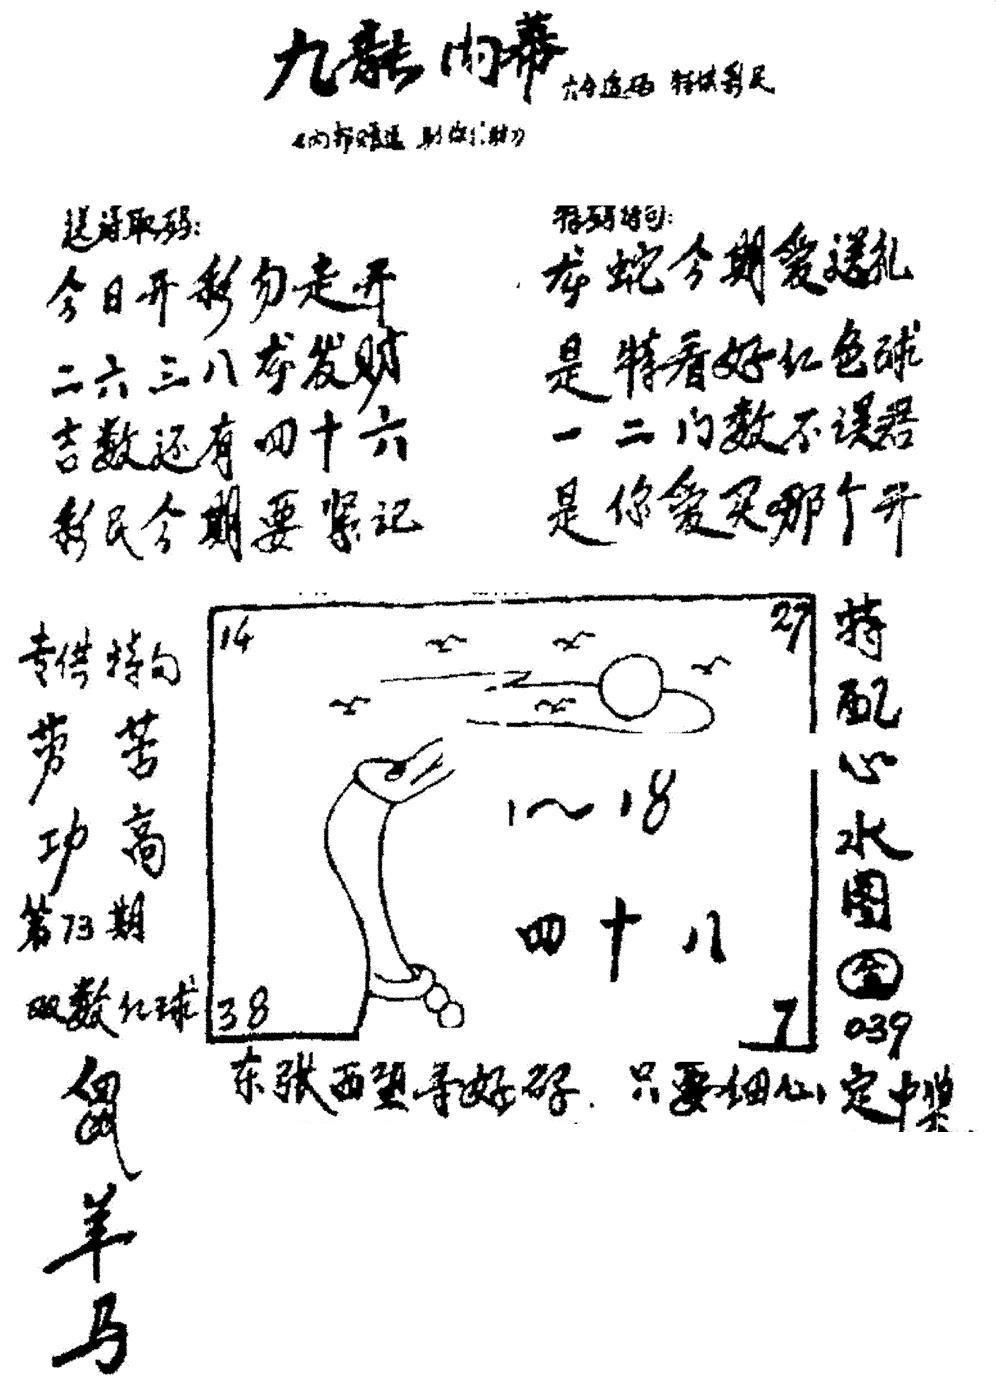 九龍内幕
六合透码 特供彩民
送诗取码:
今日开彩勿走开
二六三八本发财
吉数还有四十六
彩民今期要紧记
特码诗句:
龙蛇今期爱送礼
是特看好红色球
一二门数不误君
是你爱买哪个开
专供特句
劳苦
功高
第73期
双数红球
鼠
羊
马
14
27
1~18
四十八
38
7
特配心水图
039
东张西望寻好码.只要细心定中奖